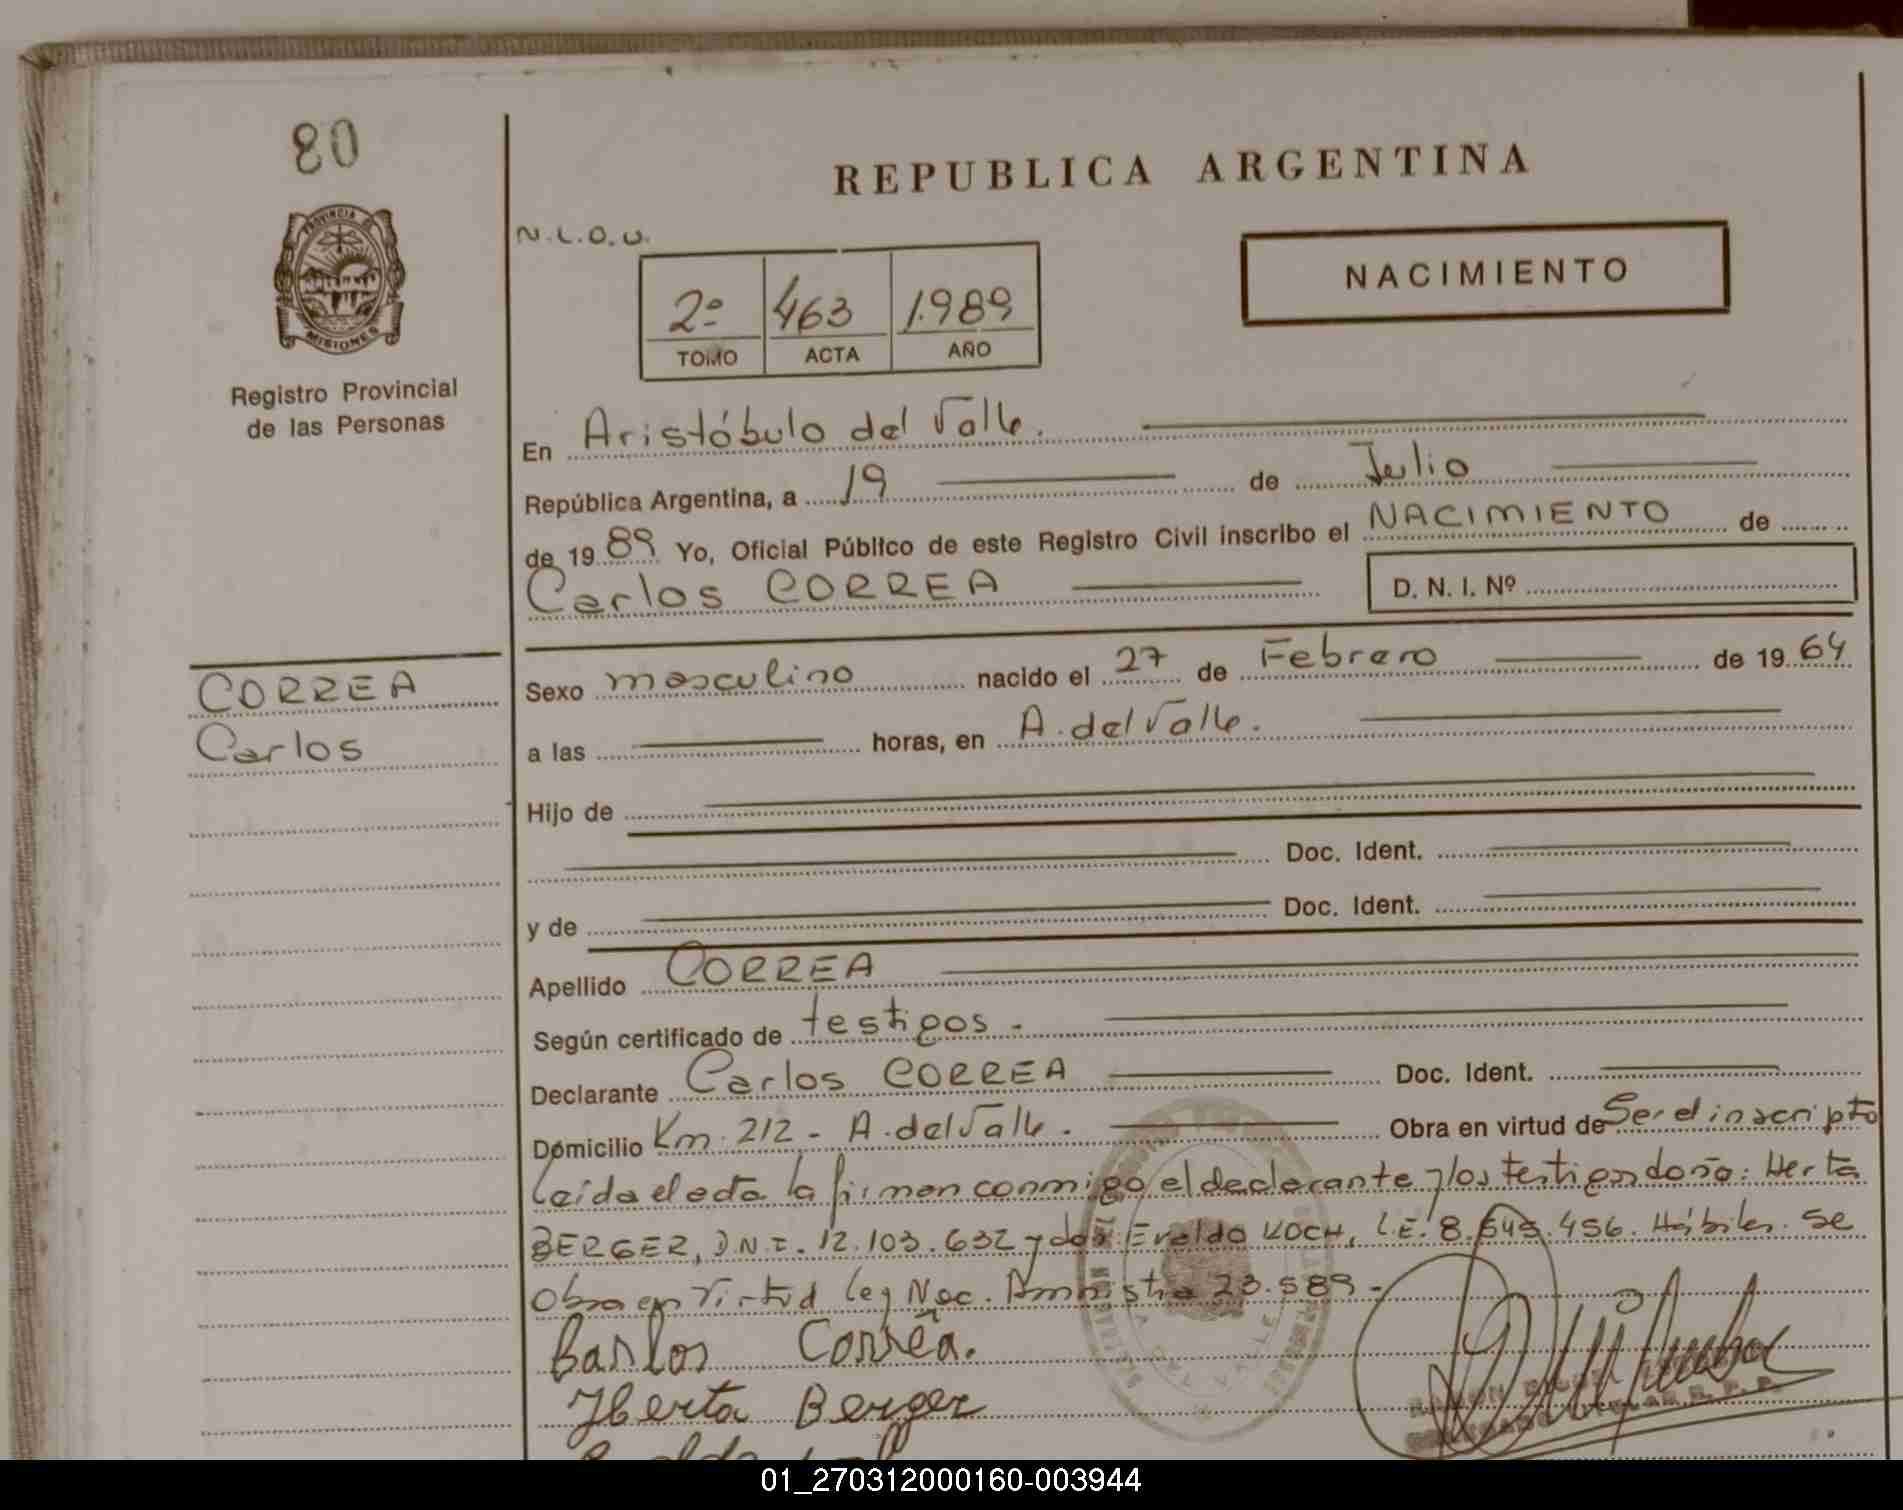 80
PROVINCIA DE
MISIONES
Registro Provincial
de las Personas
REPUBLICA ARGENTINA
N.L.O.U.
2º 463 1.989
TOMO ACTA AÑO
NACIMIENTO
En Aristóbulo del Valle.
República Argentina, a 19 de Julio
de 19 89 Yo, Oficial Público de este Registro Civil inscribo el NACIMIENTO de
Carlos CORREA D. N. I. Nº
CORREA
Carlos
Sexo masculino nacido el 27 de Febrero de 19 64
a las horas, en A. del Valle.
Hijo de
Doc. Ident.
y de Doc. Ident.
Apellido CORREA
Según certificado de testigos -
Declarante Carlos CORREA Doc. Ident.
Domicilio Km. 212 - A. del Valle. Obra en virtud de Ser el inscripto
Leída el acta la firman conmigo el declarante y los testigos doña: Herta
BERGER, D.N.I. 12.103.632 y don Eraldo KOCH, L.E. 8.545.456. Hábiles. Se
Obra en virtud Ley Nac. Amnistía 23.589 -
Carlos Correa.
Herta Berger
01_270312000160-003944